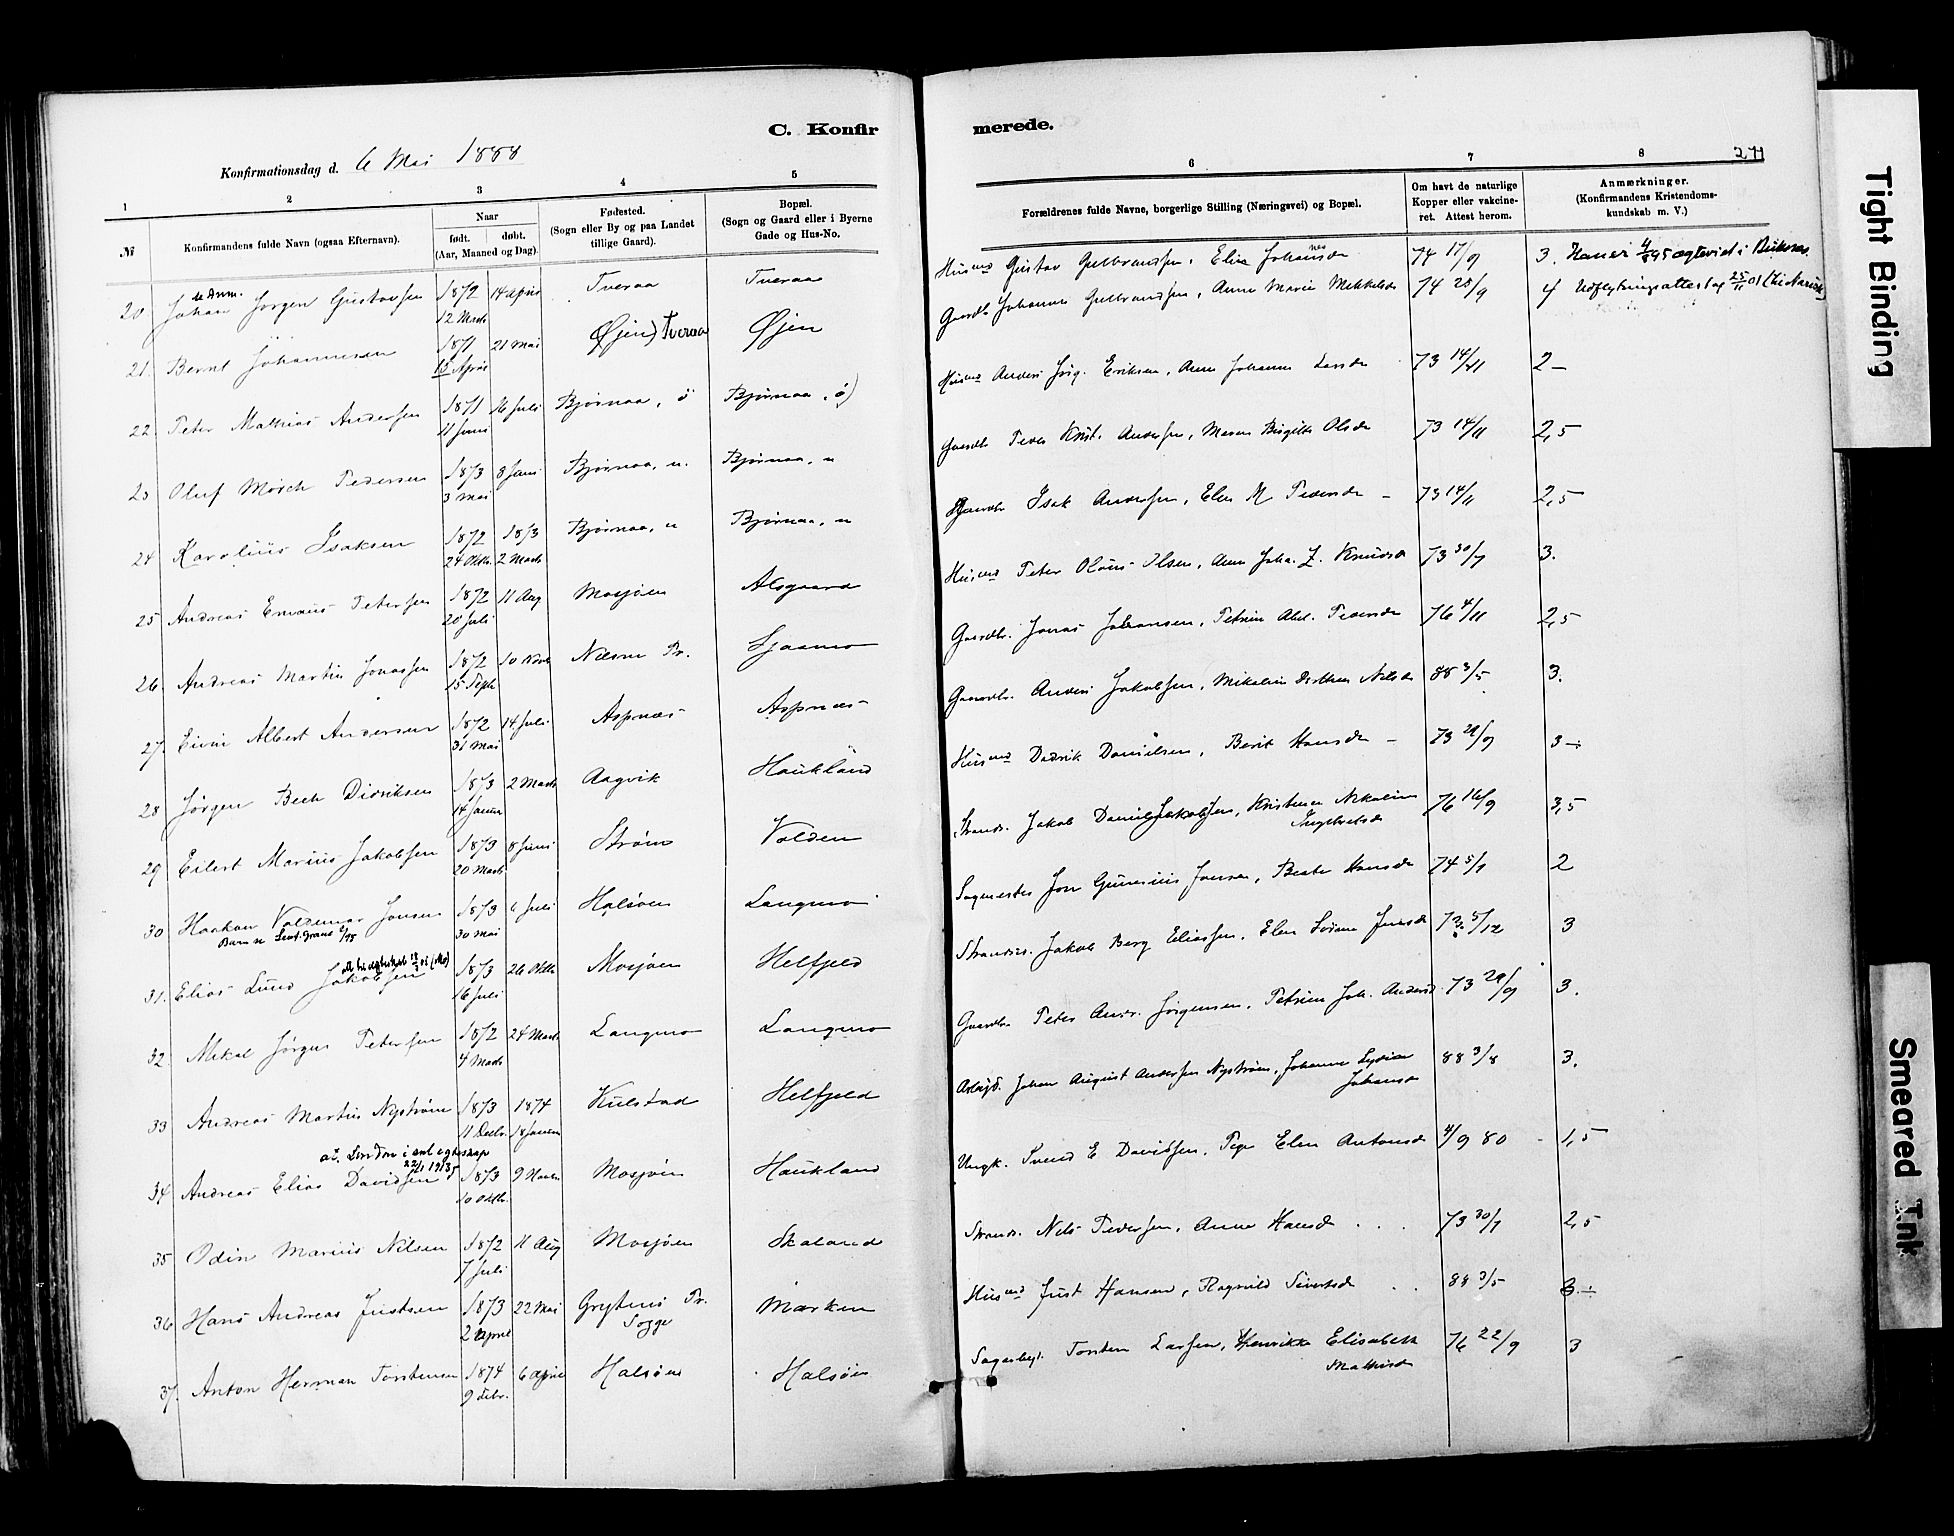 C. Konfirmerede.
Konfirmationsdag d. 6 Mai 1888
271
1 2 3 4 5 6 7 8
№
Konfirmandens fulde Navn (ogsaa Efternavn).
Naar
født. døbt.
(Aar, Maaned og Dag).
Fødested.
(Sogn eller By og paa Landet
tillige Gaard).
Bopæl.
(Sogn og Gaard eller i Byerne
Gade og Hus-No.
Forældrenes fulde Navne, borgerlige Stilling (Næringsvei) og Bopæl.
Om havt de naturlige
Kopper eller vakcine-
ret. Attest herom.
Anmærkninger.
(Konfirmandens Kristendoms-
kundskab m. V.)
se Anm.
20. Johan Jørgen Gustavsen 1872 12 Marts 14 April Tveraa Tveraa Husmd Gustav Gulbrandsen, Elin Johannesd 74 17/9 3.
21. Bernt Johannesen 1871 15 April 21 Mai Øjen) Tveraa Øjen Gaardb. Johannes Gulbrandsen, Anne Marie Mikkelsd 74 28/9 4 Udflytningsattest 25/11 01
22. Peter Mathias Andersen 1871 11 Juni 16 Juli Bjørnaa, ö Bjørnaa, ö) Husmd Anders Jørg. Eriksen, Anne Johanna Larsd 73 14/11 2 –
23 Oluf Mørch Pedersen 1873 3 Mai 8 Juni Bjørnaa, n. Bjørnaa, n Gaardb. Peder Krist. Andersen, Maren Birgitte Olsd 73 14/11 2,5
24 Karolius Isaksen 1872 24 Oktb. 1873 2 Marts Bjørnaa, n Bjørnaa, n Gaardb. Isak Andersen, Elen M Pedersd – 73 14/11 2,5
25 Andreas Emaus Petersen 1872 20 Juli 11 Aug Mosjøen Alsgaard Husmd Peter Olaus Olsen, Anne Joha. Z. Knudsd 73 30/7 3.
26. Andreas Martin Jonassen 1872 15 Septb 10 Novb Næsne Pr. Sjaamo Gaardb. Jonas Johansen, Petrine Abel. Pedersd 76 4/11 2,5
27. Albert Andersen 1872 31 Mai 14 Juli Aspnæs Aspnæs Gaardb. Anders Jakobsen, Mikaline Dorthea Nilsd 88 3/5 3.
28 Jørgen Bech Didriksen 1873 14 Januar 2 Marts Aagvik Haukland Husmd Didrik Danielsen, Berit Hansd – 73 29/9 3 –
29 Eilert Marius Jakobsen 1873 20 Marts 8 Juni Strøm Volden Strands. Jakob Daniel Jakobsen, Kristense Nikoline Ingebretsd 76 16/9 3,5
30 Haakon Valdemar Jonsen 1873 30 Mai 6 Juli Halsøen Langmo Sagmester Jon Gunerius Jonsen, Beate Hansd 74 5/7 2
31. Elias Lund Jakobsen 1873 16 Juli 26 Oktb Mosjøen Helfjeld Strands. Jakob Berg Eliassen, Elen Jensd 73 5/12 3
32. Mikal Jørgen Petersen 1872 4 Marts 24 Marts Langmo Langmo Gaardb. Peter Andr. Jørgensen, Petrine Joh. Andersd 73 29/9 3.
33 Andreas Martin Nystrøm 1873 11 Decbr. 1874 18 Januar Kulstad Helfjeld Arbejd. Johan August Andersen Nystrøm, Johanna Lydia Johansd 88 3/8 3.
at. London i ægteskap
34 Andreas Elias Davidsen 1873 10 Oktb. 9 Novem Mosjøen Haukland Ungk. Svend E Davidsen, Pige Elen Antonsd 4/9 80 – 1,5
35 Odin Marius Nilsen 1872 7 Juli 11 Aug Mosjøen Skaland Strands. Nils Pedersen, Anne Hansd 73 30/7 2,5
36 Hans Andreas Justsen 1873 2 April 22 Mai Grytens Pr. Sogge Marken Husmd Just Hansen, Ragnild Sivertsd 88 3/5 3 –
37. Anton Herman Torstensen 1874 9 Febr. 6 April Halsøen Halsøen Sagarbejd. Torsten Larsen, Henrikke Elisabeth Mathisd 76 22/9 3
Tight Binding
Smeared Ink